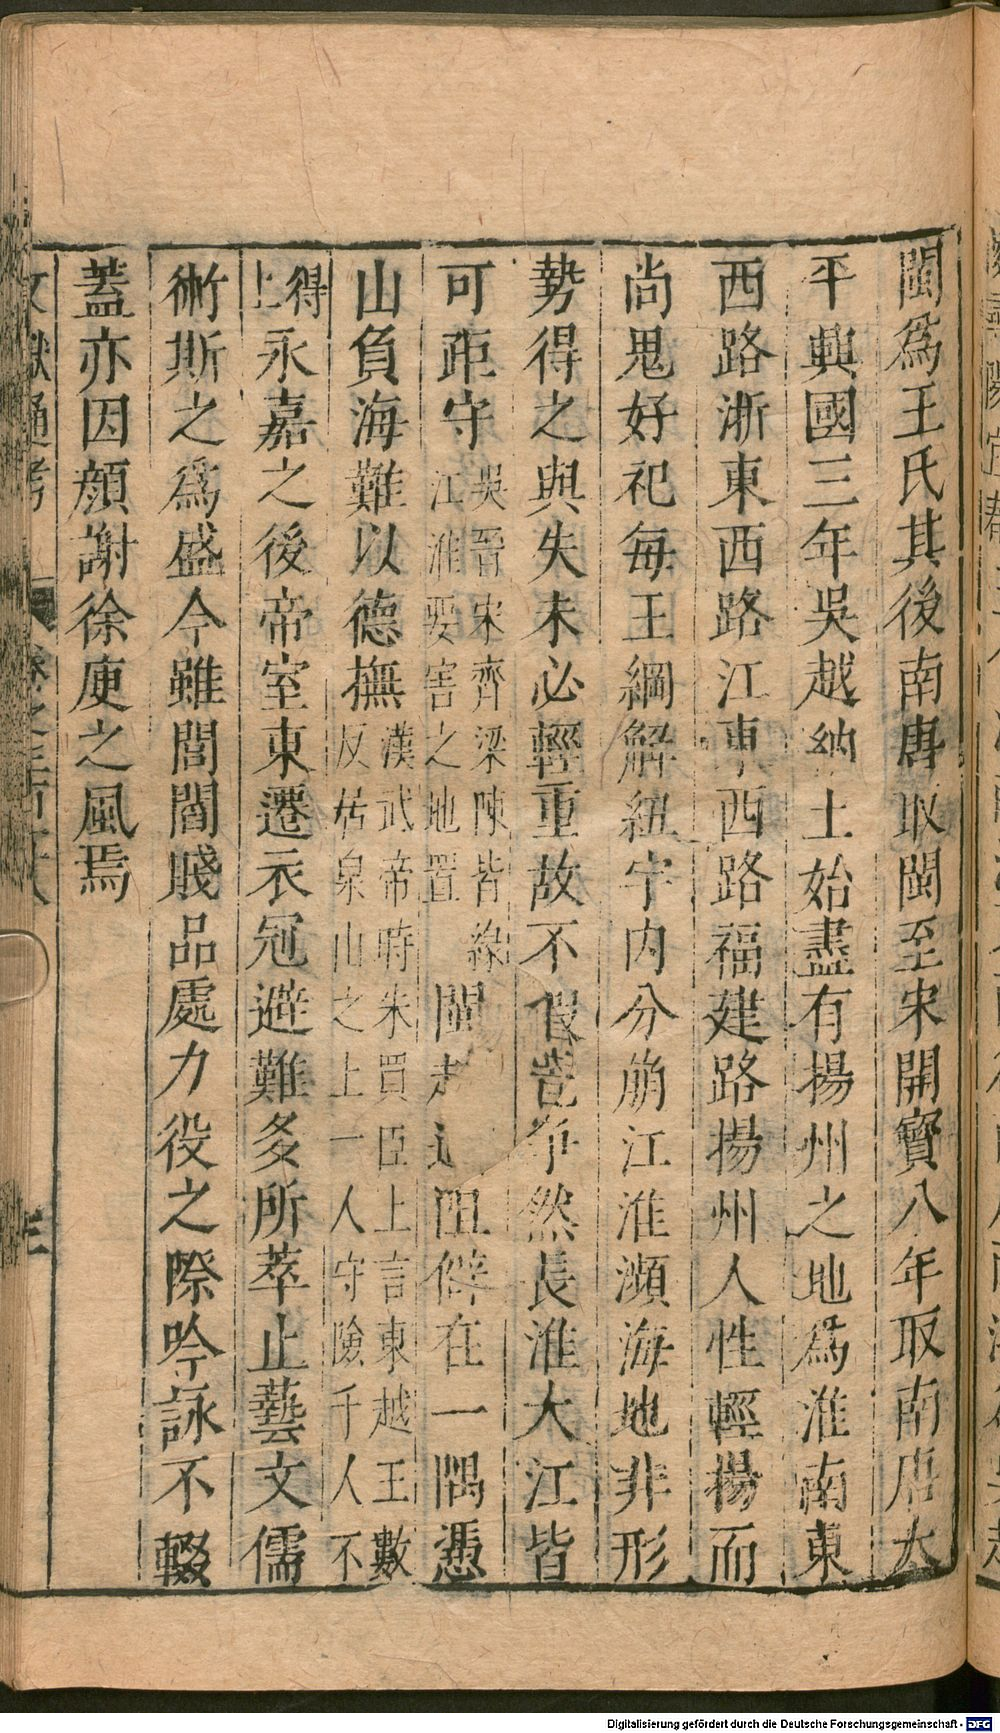 閩爲王氏其後南唐取閩至宋開寶八年取南唐太
平興國三年吳越納土始盡有揚州之地爲淮南東
西路浙東西路江東西路福建路揚州人性輕揚而
尚鬼好祀每王綱解紐宇内分崩江淮瀕海地非形
勢得之與失未必輕重故不假𡵨爭然長淮大江皆
可距守吳晉宋齊梁陳皆緣江淮要害之地置閩越遐阻僻在一隅憑
山負海難以德撫漢武帝時朱買臣上言東越王數反居泉山之上一人守險千人不
得上永嘉之後帝室東遷衣冠避難多所萃止藝文儒
術斯之爲盛今雖閭閻賤品處力役之際吟詠不輟
蓋亦因顔謝徐庾之風焉
文獻通考
Digitalisierung gefördert durch die Deutsche Forschungsgemeinschaft - DFG